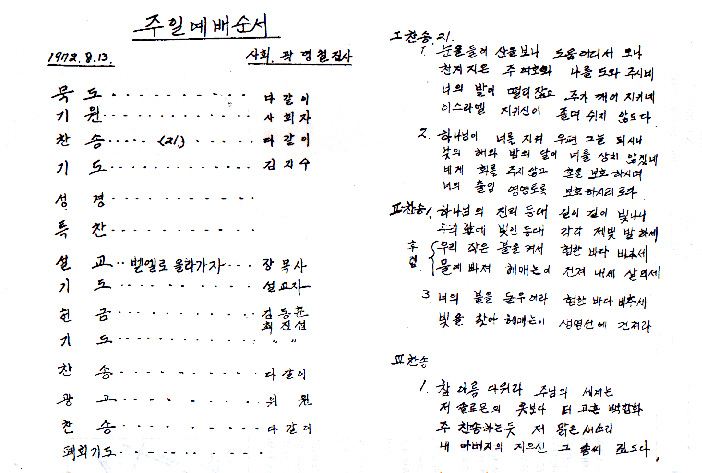 주일예배순서
1972.8.13. 사회. 곽명철집사
묵도 다같이
기원 사회자
찬송 (21) 다같이
기도 김지수
성경
특찬
설교 벧엘로 올라가자 장목사
기도 설교자
헌금 김동훈
최진섭
기도 〃 〃
찬송 다같이
광고 위원
찬송 다같이
폐회기도
I 찬송. 21.
1. 눈을 들어 산을 보니 도움 어디서 오나
천지 지은 주 여호와 나를 도와 주시네
너의 발이 떨리잖고 주가 깨어 지키네
이스라엘 지키신이 졸며 쉬지 않도다
2. 하나님이 너를 지켜 우편 그늘 되시니
낮의 해와 밤의 달이 너를 상치 않겠네
네게 화를 주지 않고 혼을 보호하시며
너의 출입 영영토록 보호하시리로다
II 찬송 1. 하나님의 진리 등대 길이 길이 빛나니
우리 앞에 빛인 등대 각각 제빛 발하세
후렴 우리 작은 불을 켜서 험한 바다 비추세
물에 빠져 헤매는이 건져 내세 살리세
3 너의 불을 돋우어라 험한 바다 비추세
빛을 찾아 헤매는이 생명선에 건지라
III 찬송
1. 참 아름다워라 주님의 세계는
저 솔로몬의 옷보다 더 고운 백합화
주 찬송하는듯 저 맑은 새소리
내 아버지의 지으신 그 솜씨 깊도다.